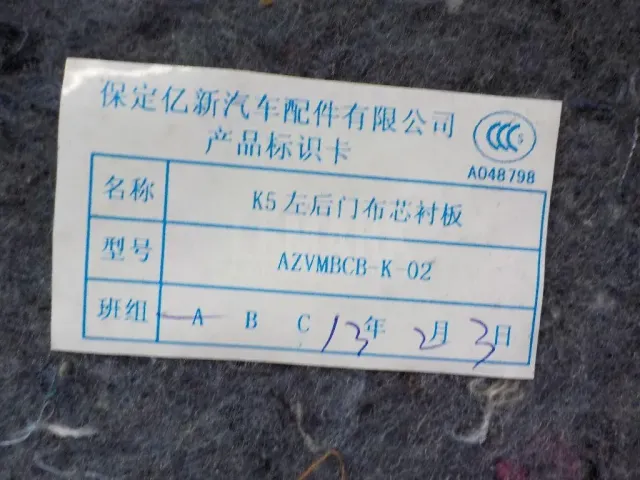 保定亿新汽车配件有限公司
产品标识卡
CCC S
A048798
名称 K5左后门布芯衬板
型号 AZVMBCB-K-02
班组 A B C 13年2月3日